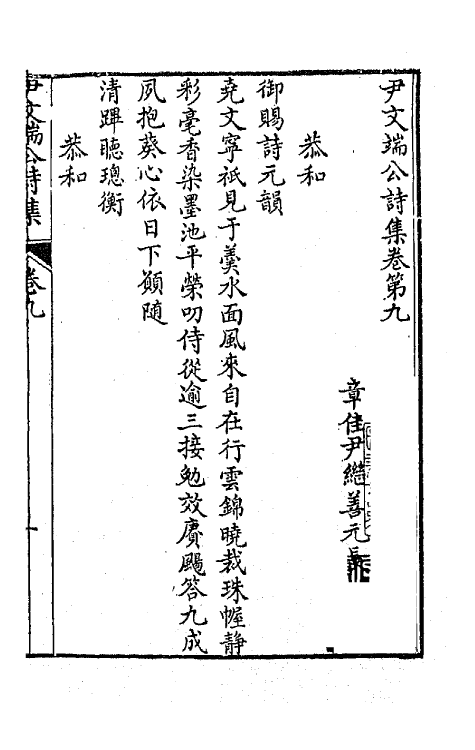 尹文端公詩集卷第九
章佳尹繼善元長
恭和
御賜詩元韻
堯文寧祇見于羹水面風來自在行雲錦曉裁珠幄靜
彩毫香染墨池平榮叨侍從逾三接勉效賡颺答九成
夙抱葵心依日下願隨
清蹕聽璁衡
恭和
尹文端公詩集
卷九